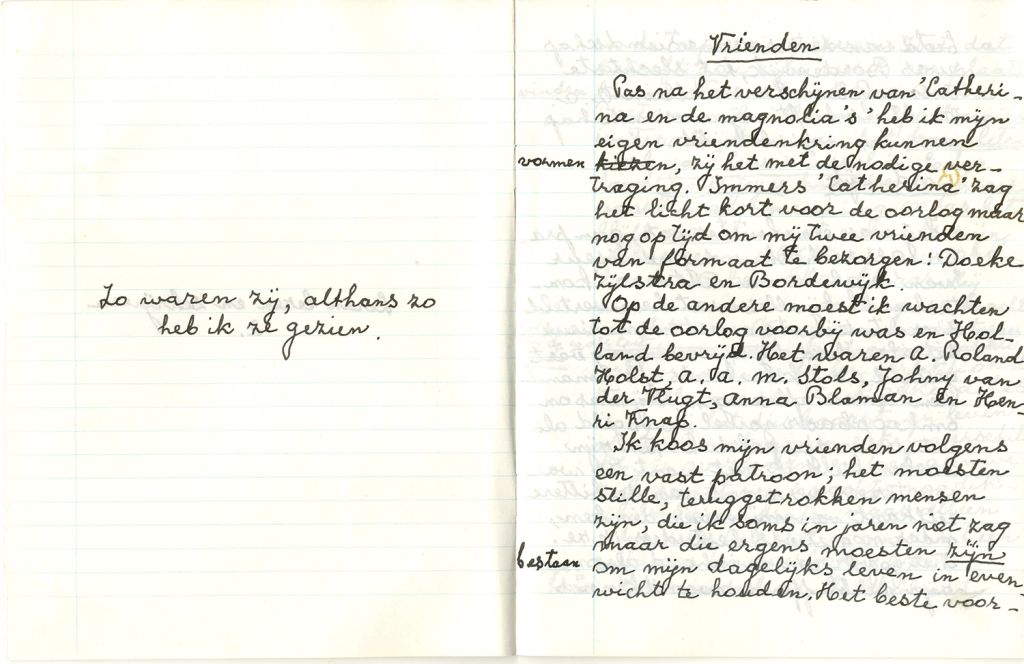 Zo waren zij, althans zo
heb ik ze gezien.
Vrienden
Pas na het verschijnen van 'Catheri-
na en de magnolia's' heb ik mijn
eigen vriendenkring kunnen
vormen kiezen, zij het met de nodige ver-
traging. Immers 'Catherina' zag
het licht kort voor de oorlog maar
nog op tijd om mij twee vrienden
van formaat te bezorgen: Doeke
Zijlstra en Bordewijk.
Op de andere moest ik wachten
tot de oorlog voorbij was en Hol-
land bevrijd. Het waren A. Roland
Holst, A. A. M. Stols, Johny van
der Vlugt, Anna Blaman en Hen-
ri Knap.
Ik koos mijn vrienden volgens
een vast patroon; het moesten
stille, teruggetrokken mensen
zijn, die ik soms in jaren niet zag
maar die ergens moesten zijn
bestaan om mijn dagelijks leven in even-
wicht te houden. Het beste voor-